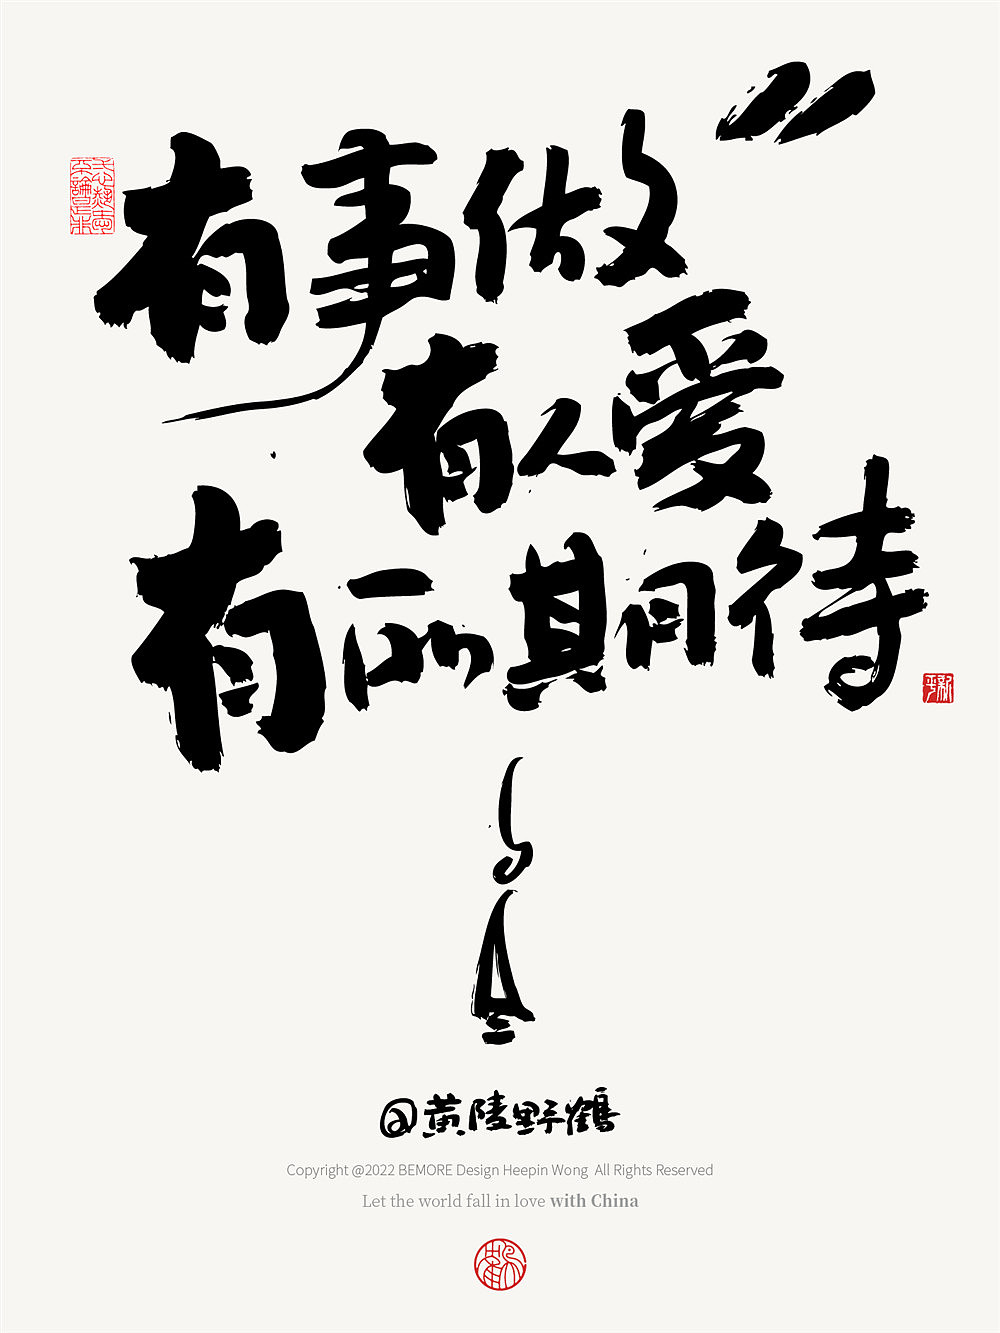 有事做
有人爱
有所期待
@黄陵野鹤
Copyright @2022 BEMORE Design Heepin Wong All Rights Reserved
Let the world fall in love with China